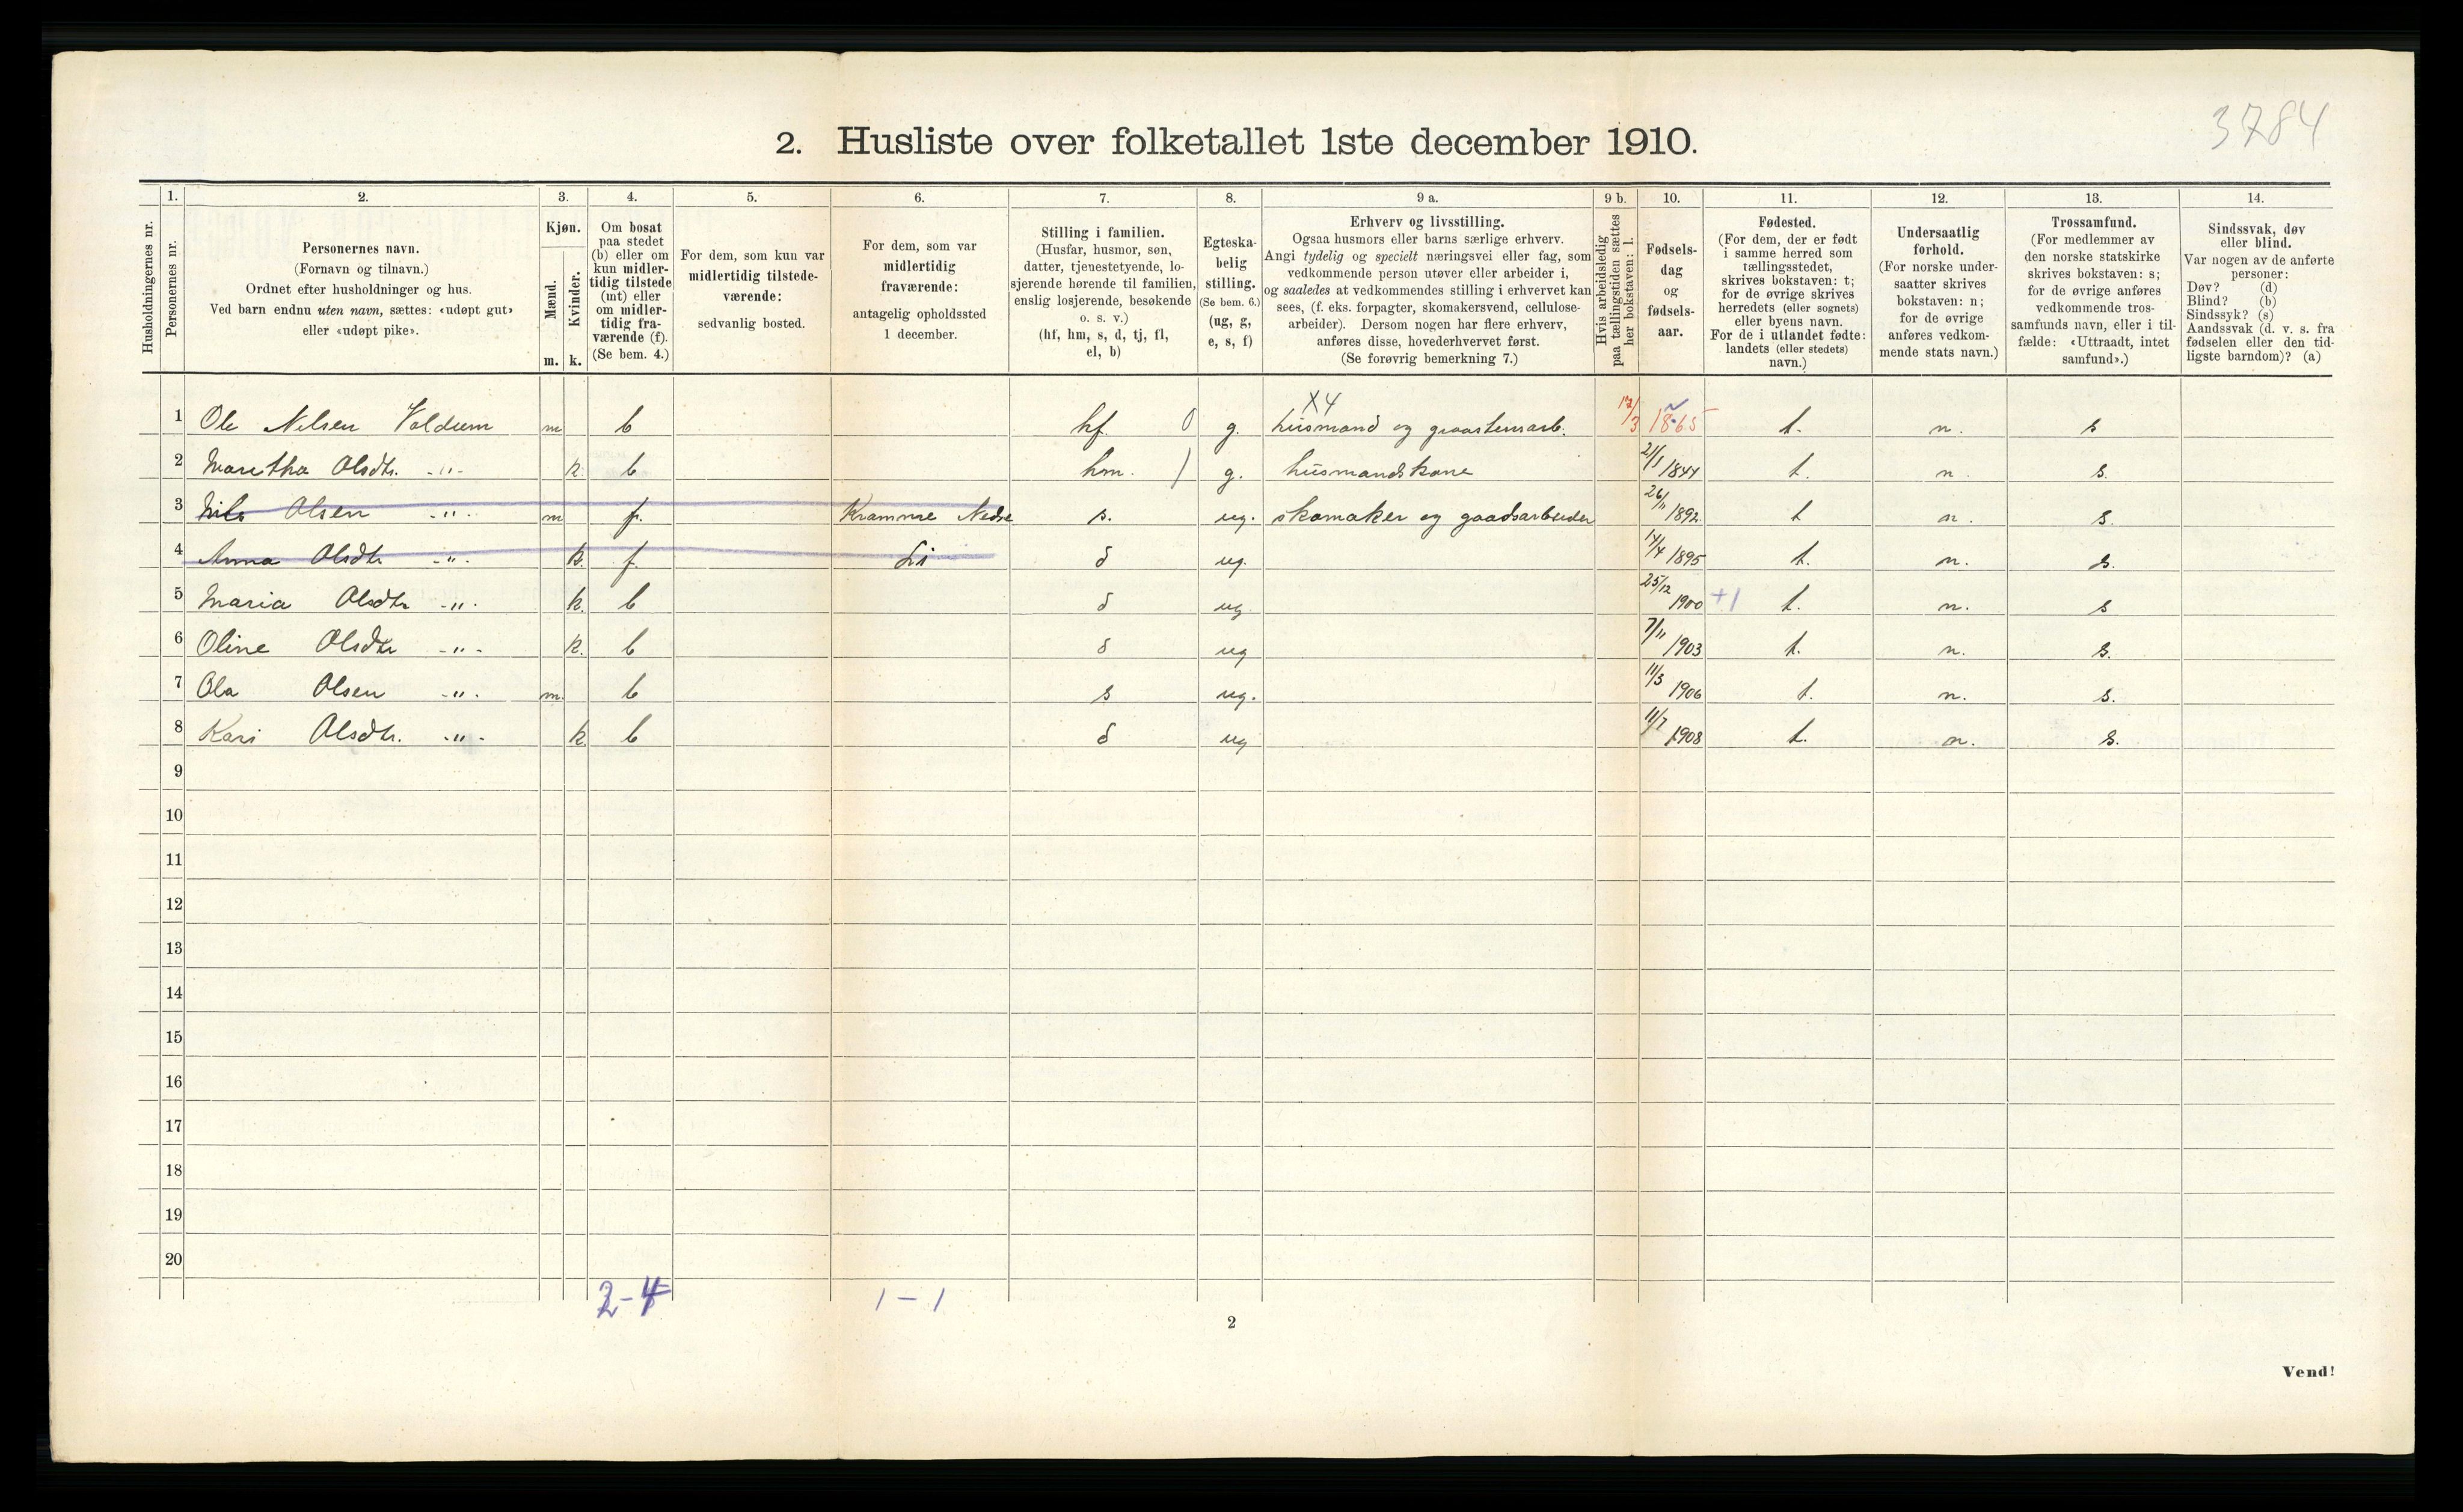 3784
2. Husliste over folketallet 1ste december 1910.
Husholdningernes nr.
1.
Personernes nr.
2.
Personernes navn.
(Fornavn og tilnavn.)
Ordnet efter husholdninger og hus.
Ved barn endnu uten navn, sættes: «udøpt gut»
eller «udøpt pike».
3.
Kjøn.
Mænd. Kvinder.
m. k.
4.
Om bosat
paa stedet
(b) eller om
kun midler-
tidig tilstede
(mt) eller
om midler-
tidig fra-
værende (f).
(Se bem. 4.)
5.
For dem, som kun var
midlertidig tilstede-
værende:
sedvanlig bosted.
6.
For dem, som var
midlertidig
fraværende:
antagelig opholdssted
1 december.
7.
Stilling i familien.
(Husfar, husmor, søn,
datter, tjenestetyende, lo-
sjerende hørende til familien,
enslig losjerende, besøkende
o. s. v.)
(hf, hm, s, d, tj, fl,
el, b)
8.
Egteska-
belig
stilling.
(Se bem. 6.)
(ug, g,
e, s, f)
9 a.
Erhverv og livsstilling.
Ogsaa husmors eller barns særlige erhverv.
Angi tydelig og specielt næringsvei eller fag, som
vedkommende person utøver eller arbeider i,
og saaledes at vedkommendes stilling i erhvervet kan
sees, (f. eks. forpagter, skomakersvend, cellulose-
arbeider). Dersom nogen har flere erhverv,
anføres disse, hovederhvervet først.
(Se forøvrig bemerkning 7.)
9 b.
Hvis arbeidsledig
paa tællingstiden sættes
her bokstaven: l.
10.
Fødsels-
dag
og
fødsels-
aar.
11.
Fødested.
(For dem, der er født
i samme herred som
tællingsstedet,
skrives bokstaven: t;
for de øvrige skrives
herredets (eller sognets)
eller byens navn.
For de i utlandet fødte:
landets (eller stedets)
navn.)
12.
Undersaatlig
forhold.
(For norske under-
saatter skrives
bokstaven: n;
for de øvrige
anføres vedkom-
mende stats navn.)
13.
Trossamfund.
(For medlemmer av
den norske statskirke
skrives bokstaven: s;
for de øvrige anføres
vedkommende tros-
samfunds navn, eller i til-
fælde: «Uttraadt, intet
samfund».)
14.
Sindssvak, døv
eller blind.
Var nogen av de anførte
personer:
Døv? (d)
Blind? (b)
Sindssyk? (s)
Aandssvak (d. v. s. fra
fødselen eller den tid-
ligste barndom)? (a)
X4
1 Ole Nilsen Voldum m b hf 0 g. husmand og graastensarb. 17/3 1865 t. n. s
2 Maretha Olsdtr. -"- k. b hm. ) g. husmandskone 21/1 1844 t. n. s.
3 Nils Olsen -"- m f. Kramme Nedre s. ug. skomaker og gaadsarbeider 26/11 1892 t n. s.
4 Anna Olsdtr -"- k. f. Li d ug. 14/4 1895 t. n. s.
5 Maria Olsdtr -"- k. b d ug 25/12 1900 +1 t. n. s
6 Oline Olsdtr -"- k. b d ug 7/11 1903 t. n. s.
7 Ola Olsen -"- m. b s ug. 11/3 1906 t. n. s.
8 Kari Olsdtr. -"- k. b d ug 11/7 1908 t. n. s.
9
10
11
12
13
14
15
16
17
18
19
20
2-4 1-1
2
Vend!